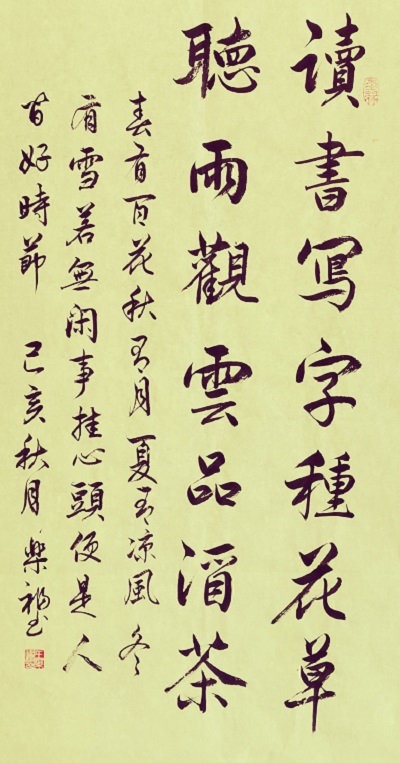 讀書寫字種花草
聽雨觀雲品酒茶
春有百花秋有月夏有涼風冬
有雪若無闲事挂心頭便是人
间好時節 己亥秋月 樂福书